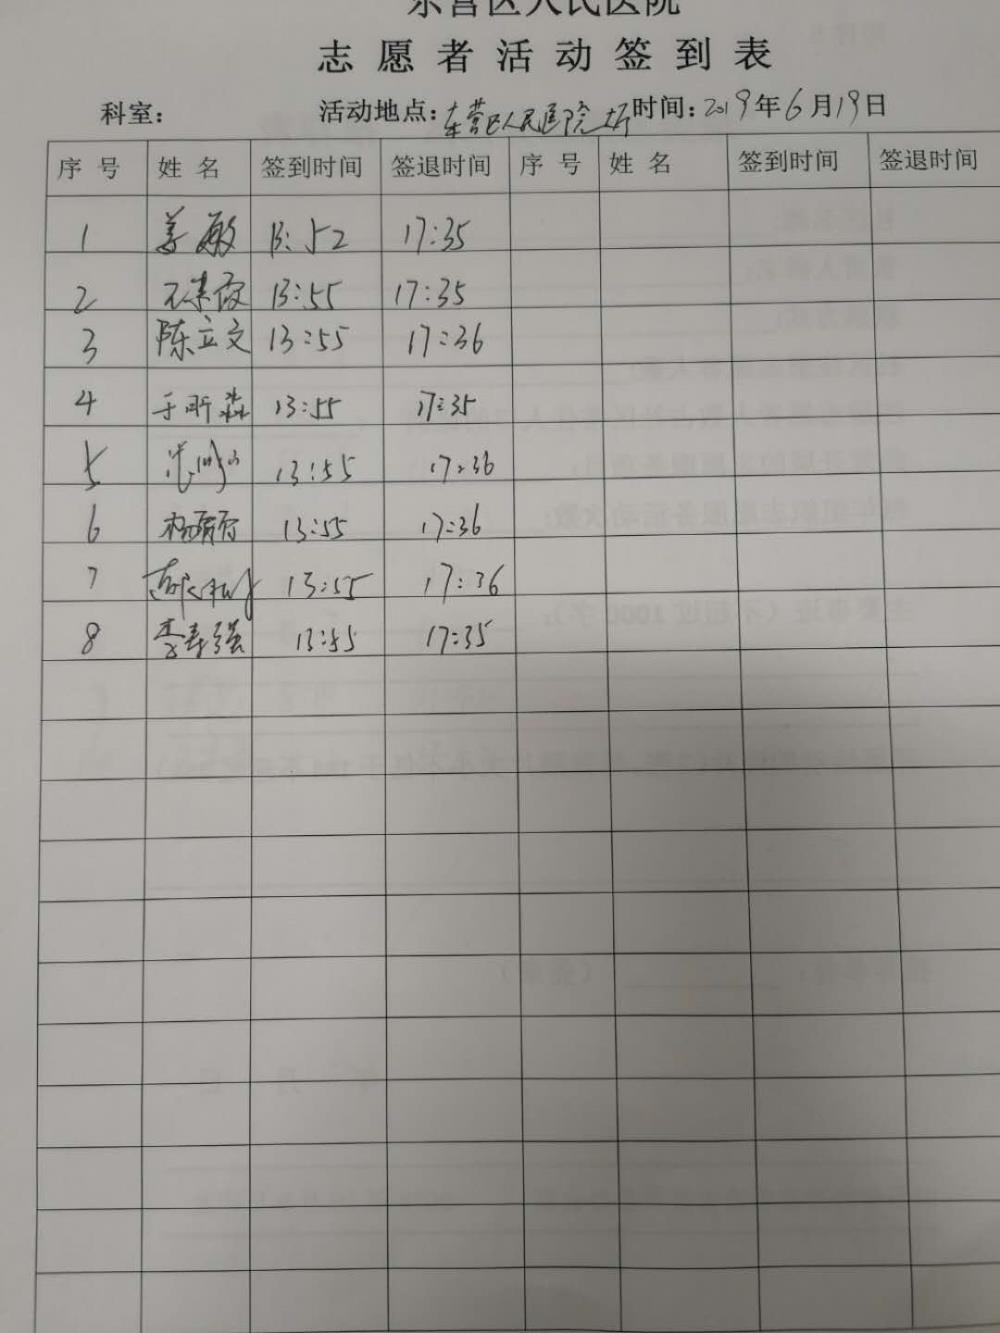 东营区人民医院
志愿者活动签到表
科室： 活动地点：东营区人民医院 时间：2019年6月19日
序号 姓名 签到时间 签退时间 序号 姓名 签到时间 签退时间
1 姜敏 13:52 17:35
2 13:55 17:35
3 陈立文 13:55 17:36
4 13:55 17:35
5 13:55 17:36
6 13:55 17:36
7 13:55 17:36
8 李寿强 13:55 17:35